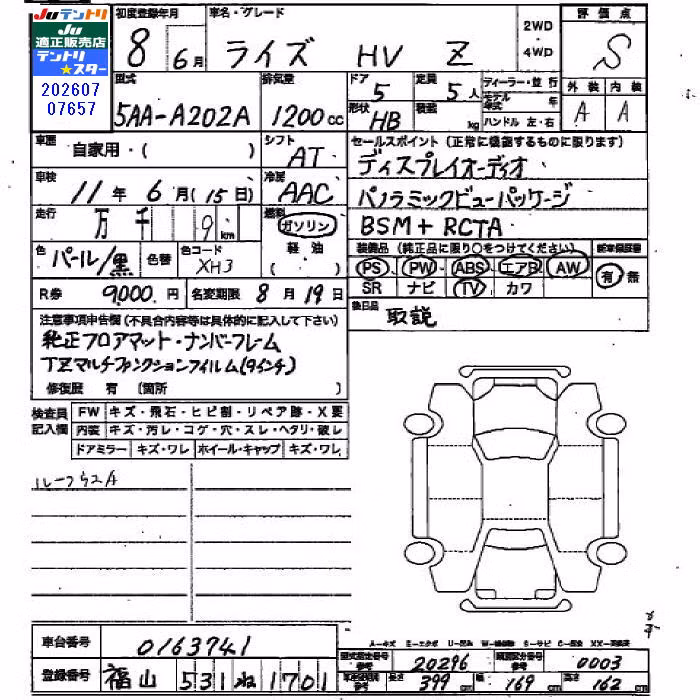 JUテントリ
JU
適正販売店
テントリ
★スター
202607
07657
初度登録年月
8 6月
車名・グレード
ライズ HV Z
2WD
4WD
評価点
S
外装 内装
A A
型式
5AA-A202A
排気量
1200cc
ドア
5
形状
HB
定員
5人
積載
kg
ディーラー・並行
モデル
年式 年
ハンドル 左・右
車歴
自家用・( )
シフト
AT
セールスポイント(正常に機能するものに限ります)
ディスプレイオーディオ
パノラミックビューパッケージ
BSM+RCTA
車検
11年 6月(15日)
冷房
AAC
走行
万 千 9 km
燃料
ガソリン
軽油
( )
色
パール/黒
色替
色コード
XH3
装備品(純正品に限り○をつけてください)
新車保証書
PS PW ABS エアB AW
SR ナビ TV カワ
有 無
R券 9,000円
名変期限 8月19日
後日品
取説
注意事項申告欄(不具合内容等は具体的に記入して下さい)
純正フロアマット・ナンバーフレーム
TZマルチファンクションフィルム(9インチ)
修復歴 有 (箇所 )
検査員
記入欄
FW キズ・飛石・ヒビ割・リペア跡・X要
内装 キズ・汚レ・コゲ・穴・スレ・ヘタリ・破レ
ドアミラー キズ・ワレ ホイール・キャップ キズ・ワレ
ルーフうスA
車台番号
0163741
登録番号
福山 531 ね 1701
A-キズ E-エクボ U-凹み
型式指定番号
参考
20296
類別区分番号
参考
0003
長さ 399 cm 幅 169 cm 高さ 162 cm